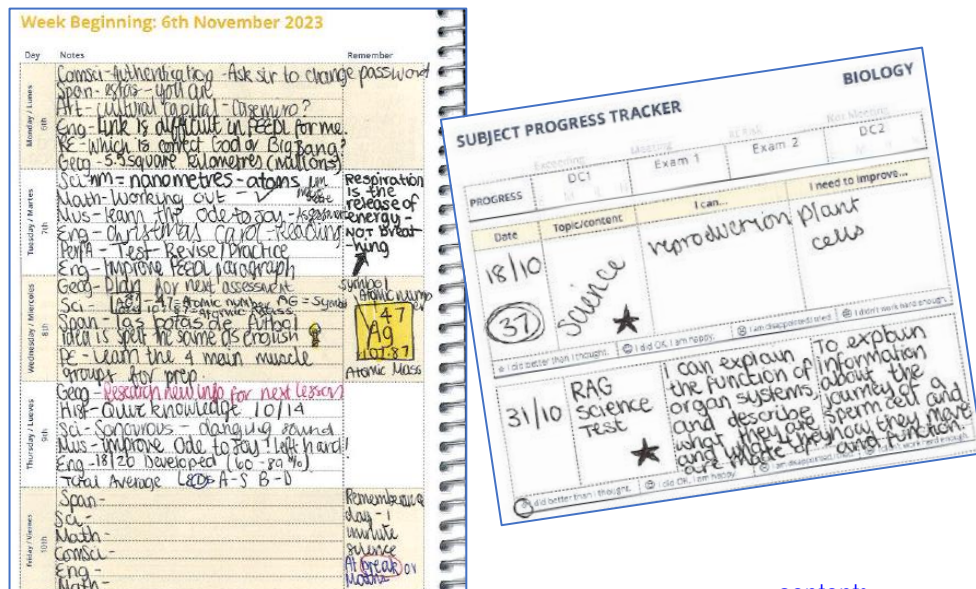 Week Beginning: 6th November 2023
Day Notes Remember
Monday / Lunes 6th
Comsci - Authentication - Ask sir to change password
Span - estas - you are
Art - cultural capital - Casemiro?
Eng - Link is difficult in PEEDL for me.
RE - Which is correct God or Big Bang?
Geog - 5.5 square kilometres (millions)
Tuesday / Martes 7th
Sci - nm = nanometres - atoms
Math - Working out
Mus - learn the Ode to Joy - Assessment
Eng - Christmas Carol - Reading
PerfA - Test - Revise/Practice
Eng - Improve PEEDL paragraph
Respiration
is the
release of
energy -
NOT Breat
hing
Wednesday / Miercoles 8th
Geog - Plan for next assessment
Sci - 47 = Atomic number AG = Symbol
107.87 = Atomic Mass
Span - las botas de futbol
idea is spelt the same as english
PE - Learn the 4 main muscle
groups for prep.
Symbol
Atomic number
47
Ag
107.87
Atomic Mass
Thursday / Jueves 9th
Geog - Research new info for next lesson
Hist - Quiz knowledge 10/14
Sci - Sonourous - danging sound
Mus - improve Ode to Joy! left hand!
Eng - 18/26 Developed (60 - 89%).
Total Average
Friday / Viernes 10th
Span -
Sci -
Math -
Comsci -
Eng -
Math -
Remembrance
day - 1
minute
silence
At break or
BIOLOGY
SUBJECT PROGRESS TRACKER
Exceeding Meeting At Risk Not Meeting
PROGRESS DC1 Exam 1 Exam 2 DC2
Date Topic/content I can... I need to improve...
18/10
37
Science
reproduction
plant
cells
I did better than I thought. I did OK, I am happy. I am disappointed I tried. I didn't work hard enough.
31/10
RAG
Science
Test
I can explain
the function of
organ systems,
and describe
what they are
and
are made
To explain
information
about the
journey of a
sperm cell and
how they move
and function.
I did better than I thought. I did OK, I am happy